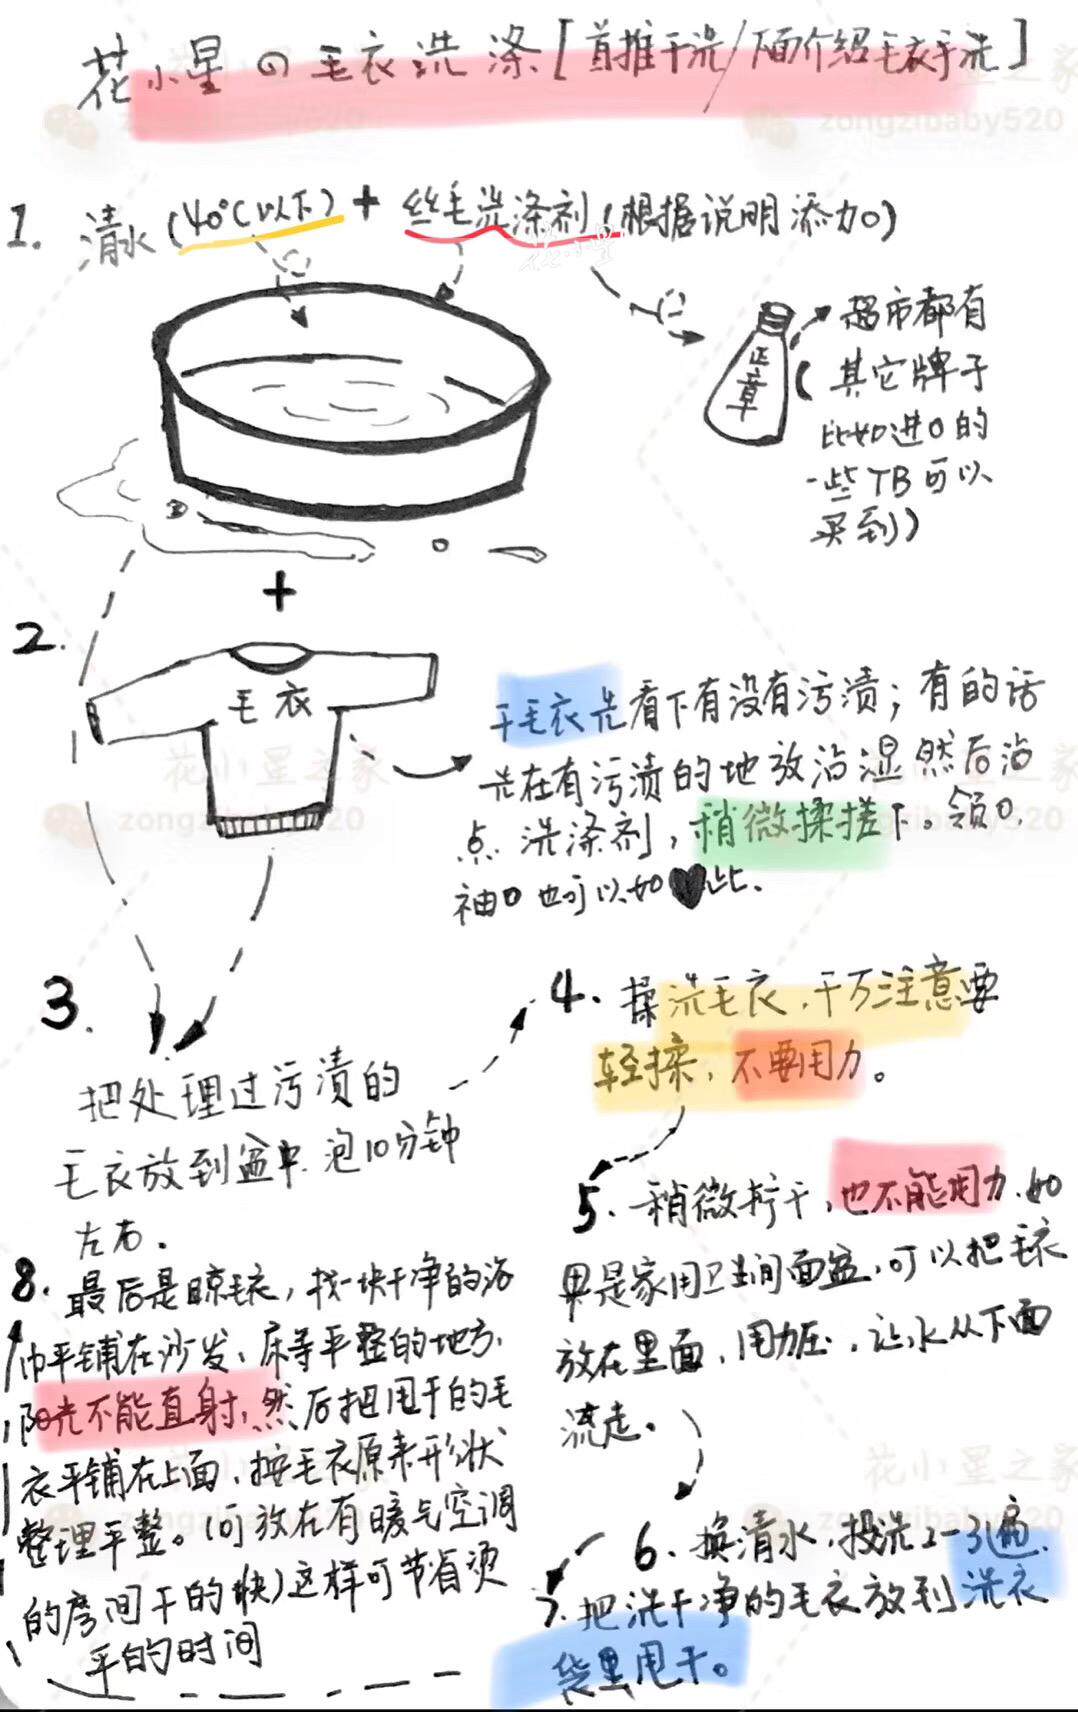 花小星の毛衣洗涤[首推干洗/下面介绍毛衣手洗]
1. 清水(40°C以下)+丝毛洗涤剂(根据说明添加)
花小星
正章
超市都有
(其它牌子
比如进口的
一些TB可以
买到)
+
2.
毛衣
干毛衣先看下有没有污渍;有的话
先在有污渍的地放沾湿然后沾
点洗涤剂,稍微揉搓下。领口,
袖口也可以如♥此.
3.
把处理过污渍的
毛衣放到盆中.泡10分钟
左右.
4. 揉洗毛衣,千万注意要
轻揉,不要用力。
5. 稍微拧干,也不能用力.如
果是家用卫生间面盆,可以把毛衣
放在里面,用力压,让水从下面
流走。
6. 换清水,投洗2-3遍.
7. 把洗干净的毛衣放到洗衣
袋里甩干。
8. 最后是晾毛衣,找一块干净的浴
巾平铺在沙发、床等平整的地方,
阳光不能直射,然后把甩干的毛
衣平铺在上面,按毛衣原来形状
整理平整。(可放在有暖气空调
的房间干的快)这样可节省烫
平的时间
花小星之家
zongzibaby520
花小星之家
zongzibaby520
花小星之家
zongzibaby520